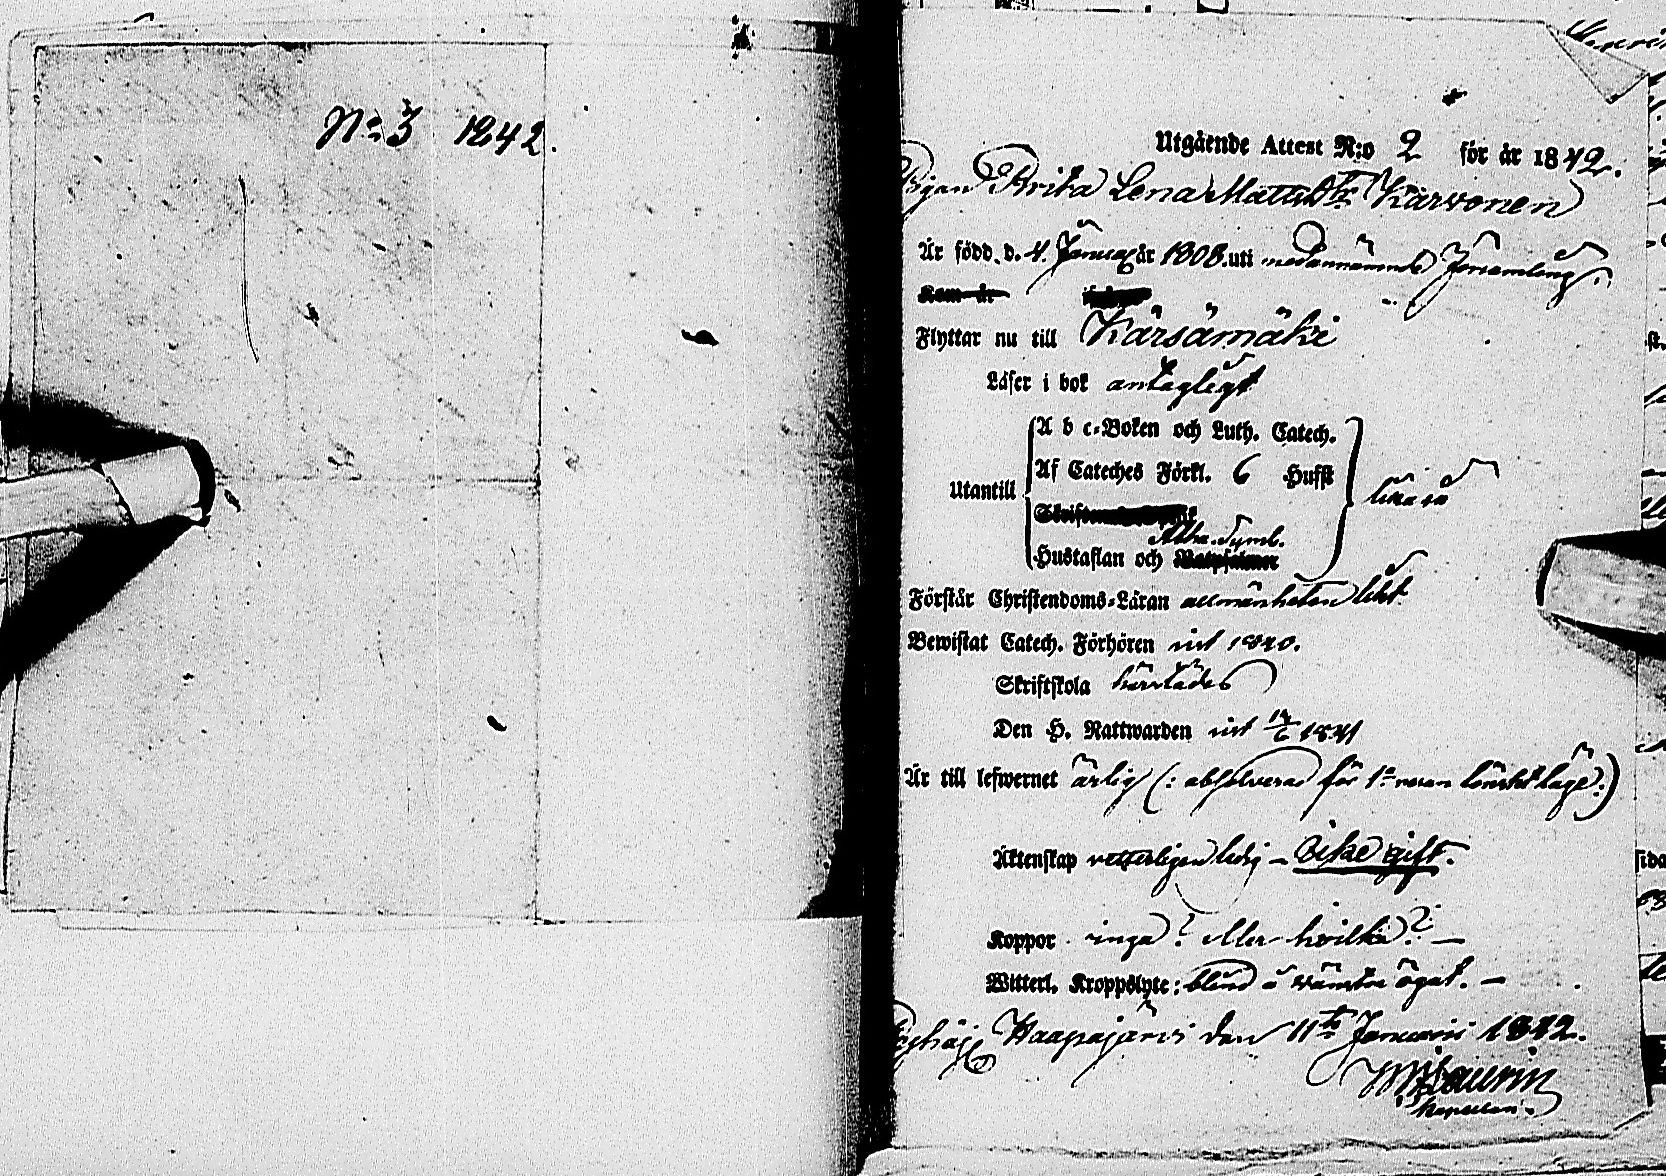 No 3 1842.
Utgående Attest N:o 2 för år 1842.
Pigan Brita Lena Mattsdtr Karvonen
Är född d. 4 Januari år 1808 uti nedannämnde församling.
Kom år
Flyttar nu till Kärsämäki
Läser i bok antagligt
A b c-Boken och Luth. Catech.
Utantill Af Cateches Förkl. 6 Hufst lika så
Atha. Symb.
Hustaflan och
Förstår Christendoms-Läran allmänheten likt.
Bewistat Catech. Förhören sist 1840.
Skriftskola härstädes
Den H. Nattwarden sist 14/6 1841
Är till lefwernet ärlig (: absolverad för 1:a resan lönskaläge :)
Äktenskap veterligen ledig – Icke gift.
Koppor inga? eller hvilka? –
Witterl. Kroppslyte: blind å vänstra ögat. –
Pyhäj. Haapajärvi den 11te Januarii 1842.
Laurin
Kapellan.